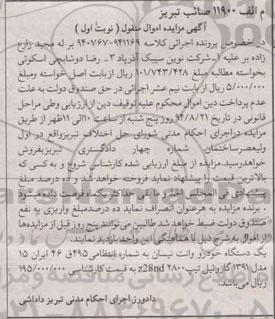 م الف ۱۱۹۰۰ صائب تبریز
آگهی مزایده اموال منقول ( نوبت اول )
در خصوص پرونده اجرائی کلاسه ۹۴۱۱۶۹-۹۴۰۷۶۷ بر له مجید زارع
زاده بر علیه ۱-شرکت نوین سیبک آذرپاد ۲- رضا دوشابچی اسکوئی
بخواسته مطالبه مبلغ ۱۰۱/۷۴۳/۴۲۸ ریال از بابت اصل خواسته ومبلغ
۵/۰۰۰/۰۰۰ ریال از بابت نیم عشر اجرائی در حق صندوق دولت به علت
عدم پرداخت دین اموال محکوم علیه توقیف دین از ارزیابی وطی مراحل
قانونی در تاریخ ۹۴/۸/۲۱ روز پنج شنبه از ساعت ۱۰ الی ۱۱ظهر از طریق
مزایده دراجرای احکام مدنی شورای حل اختلاف تبریزواقع در اول
ولیعصرساختمان شماره چهار دادگستری تبریزبفروش
خواهدرسید.مزایده از مبلغ ارزیابی شده کارشناس شروع و به کسی که
بالاترین قیمت را پیشنهاد نماید فروخته خواهد شد و ده درصد مبلغ
پیشنهادی فی المجلس اخذ و مابقی حداکثر یکماه فرصت داده میشود
. برنده مزایده به هرعنوان انصراف نماید ده درصدمبلغ واریزی به نفع
صندوق دولت ضبط خواهد شد طالبین می توانند پنج روز قبل از مزایده‌ها
از اموال به‌شرح ذیل با هماهنگی این واحد بازدید نمایند.
یک دستگاه خودرو وانت نیسان به شماره انتظامی ۴۹۵ق ۴۶ ایران ۱۵
مدل ۱۳۹۱ گازوئیل تیپ ۲۸۰۰ 228nd به قیمت کارشناسی ۱۹۵/۰۰۰/۰۰۰
ریال می‌باشد.
دادورز اجرای احکام مدنی تبریز داداشی